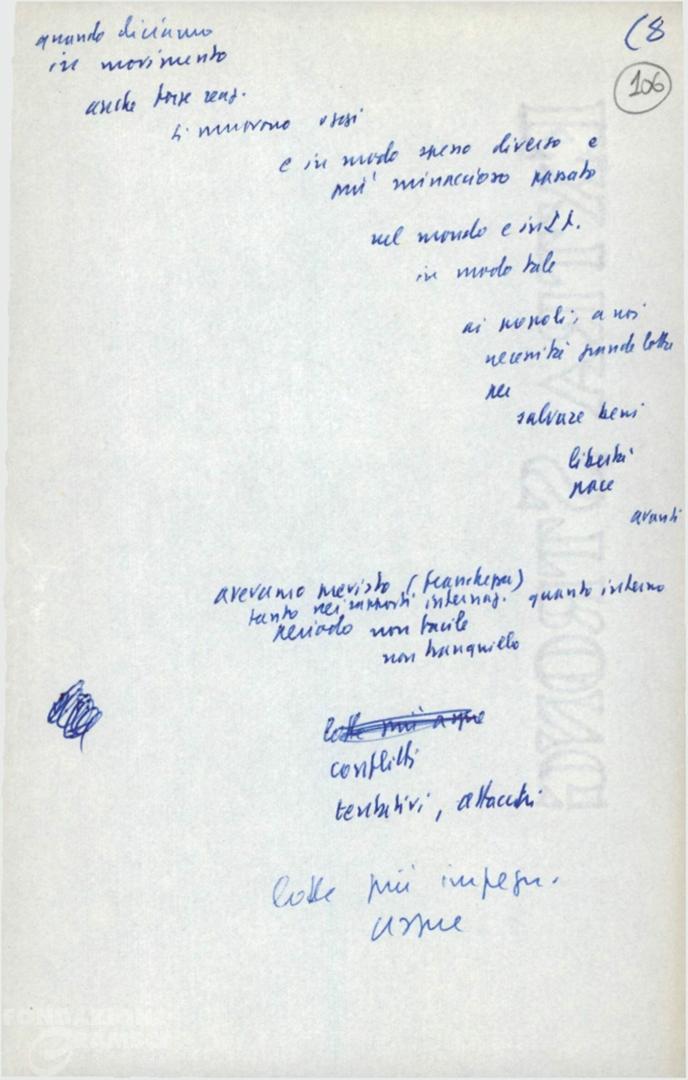 (8
106
quando diciamo
in movimento
anche forze reaz.
si muovono oggi
e in modo spesso diverso e
più minaccioso passato
nel mondo e in It.
in modo tale
ai popoli, a noi
necessità grande lotta
per
salvare beni
libertà
pace
avanti
avevamo previsto
tanto nei rapporti internaz. quanto interno
periodo non facile
non tranquillo
lotte più aspre
conflitti
tentativi, attacchi
lotte più impegn.
aspre